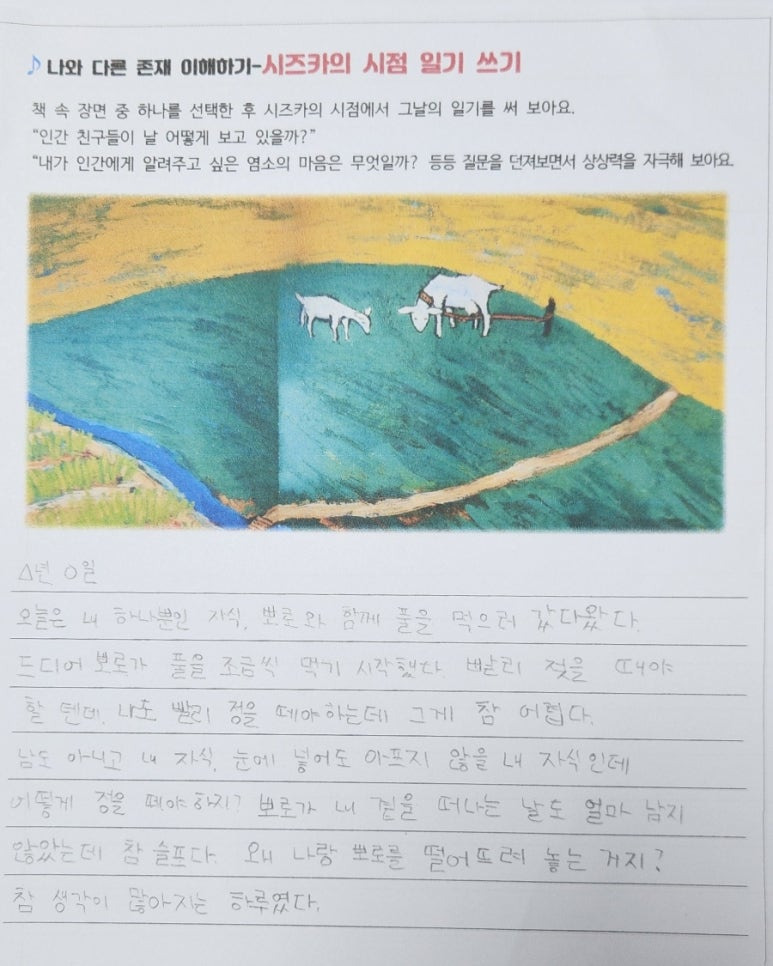 ♪나와 다른 존재 이해하기-시즈카의 시점 일기 쓰기
책 속 장면 중 하나를 선택한 후 시즈카의 시점에서 그날의 일기를 써 보아요.
“인간 친구들이 날 어떻게 보고 있을까?”
“내가 인간에게 알려주고 싶은 염소의 마음은 무엇일까? 등등 질문을 던져보면서 상상력을 자극해 보아요.
△년 ○일
오늘은 내 하나뿐인 자식, 뽀로와 함께 풀을 먹으러 갔다왔다.
드디어 뽀로가 풀을 조금씩 먹기 시작했다. 빨리 젖을 떼야
할 텐데. 나도 빨리 정을 떼야하는데 그게 참 어렵다.
남도 아니고 내 자식, 눈에 넣어도 아프지 않을 내 자식인데
어떻게 정을 떼야하지? 뽀로가 내 곁을 떠나는 날도 얼마 남지
않았는데 참 슬프다. 왜 나랑 뽀로를 떨어뜨려 놓는 거지?
참 생각이 많아지는 하루였다.